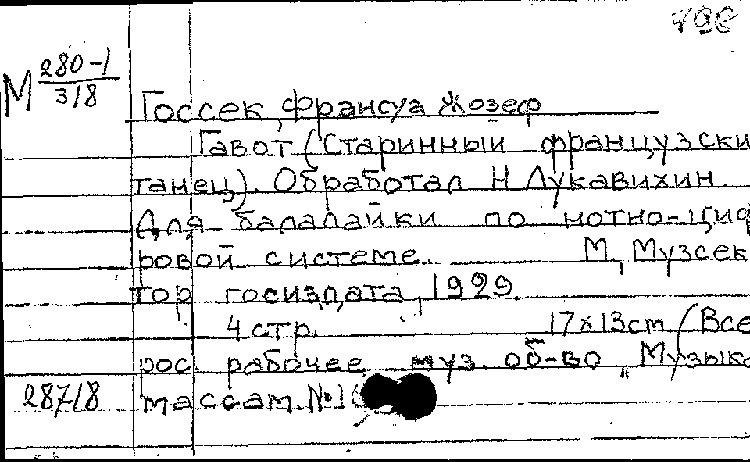 М 280-1/318
Госсек, Франсуа Жозеф
Гавот (Старинный французски
танец). Обработал Н Лукавихин.
Для балалайки по нотно-циф
ровой системе. М, Музсек
тор госиздата, 1929.
4 стр. 17х13cm (Все
рос. рабочее муз. об-во „Музыка
28718 массам. №